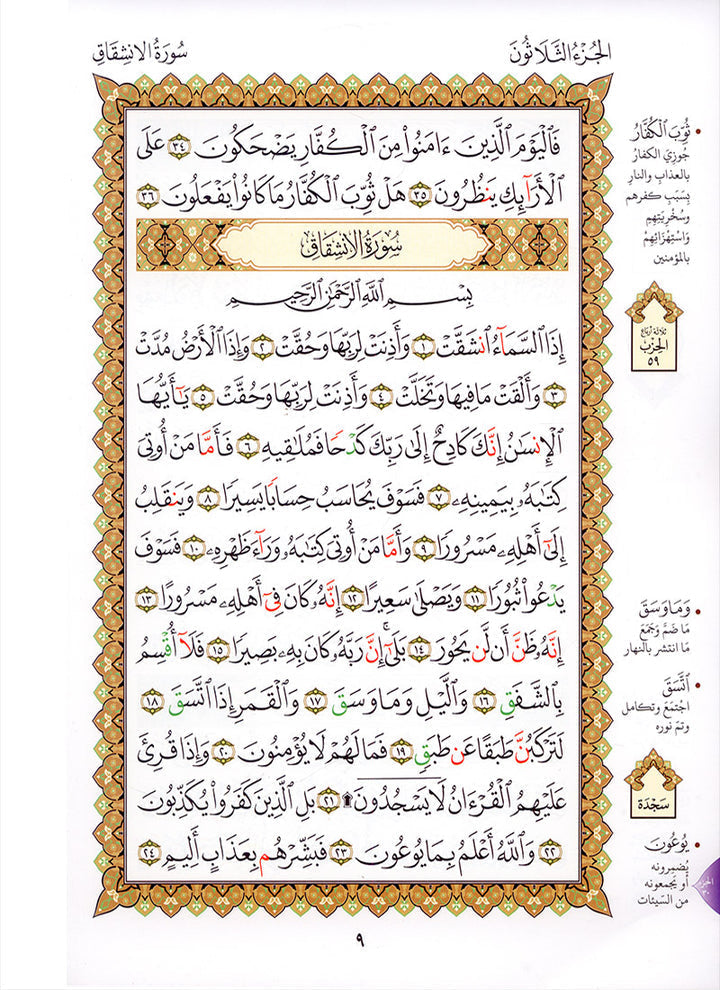 الجُزْءُ الثَّلَاثُونَ
سُورَةُ الِانشِقَاقِ
فَالْيَوْمَ الَّذِينَ ءَامَنُوا مِنَ الْكُفَّارِ يَضْحَكُونَ ٣٤ عَلَى
الْأَرَآئِكِ يَنظُرُونَ ٣٥ هَلْ ثُوِّبَ الْكُفَّارُ مَا كَانُوا يَفْعَلُونَ ٣٦
سُورَةُ الِانشِقَاقِ
بِسْمِ اللَّهِ الرَّحْمَٰنِ الرَّحِيمِ
إِذَا السَّمَآءُ انشَقَّتْ ١ وَأَذِنَتْ لِرَبِّهَا وَحُقَّتْ ٢ وَإِذَا الْأَرْضُ مُدَّتْ
٣ وَأَلْقَتْ مَا فِيهَا وَتَخَلَّتْ ٤ وَأَذِنَتْ لِرَبِّهَا وَحُقَّتْ ٥ يَٰٓأَيُّهَا
الْإِنسَٰنُ إِنَّكَ كَادِحٌ إِلَىٰ رَبِّكَ كَدْحًا فَمُلَٰقِيهِ ٦ فَأَمَّا مَنْ أُوتِيَ
كِتَٰبَهُۥ بِيَمِينِهِۦ ٧ فَسَوْفَ يُحَاسَبُ حِسَابًا يَسِيرًا ٨ وَيَنقَلِبُ
إِلَىٰٓ أَهْلِهِۦ مَسْرُورًا ٩ وَأَمَّا مَنْ أُوتِيَ كِتَٰبَهُۥ وَرَآءَ ظَهْرِهِۦ ١٠ فَسَوْفَ
يَدْعُوا ثُبُورًا ١١ وَيَصْلَىٰ سَعِيرًا ١٢ إِنَّهُۥ كَانَ فِيٓ أَهْلِهِۦ مَسْرُورًا ١٣
إِنَّهُۥ ظَنَّ أَن لَّن يَحُورَ ١٤ بَلَىٰٓ إِنَّ رَبَّهُۥ كَانَ بِهِۦ بَصِيرًا ١٥ فَلَآ أُقْسِمُ
بِالشَّفَقِ ١٦ وَاللَّيْلِ وَمَا وَسَقَ ١٧ وَالْقَمَرِ إِذَا اتَّسَقَ ١٨
لَتَرْكَبُنَّ طَبَقًا عَن طَبَقٍ ١٩ فَمَا لَهُمْ لَا يُؤْمِنُونَ ٢٠ وَإِذَا قُرِئَ
عَلَيْهِمُ الْقُرْءَانُ لَا يَسْجُدُونَ ۩ ٢١ بَلِ الَّذِينَ كَفَرُوا يُكَذِّبُونَ
٢٢ وَاللَّهُ أَعْلَمُ بِمَا يُوعُونَ ٢٣ فَبَشِّرْهُم بِعَذَابٍ أَلِيمٍ ٢٤
• ثُوِّبَ الْكُفَّارُ
جُوزِيَ الكفارُ
بالعذابِ والنارِ
بِسَبَبِ كفرهم
وسُخْرِيَتِهِم
وَاسْتِهْزَائِهِمْ
بالمؤمنين
ثلاثة أرباع
الحِزْب
٥٩
• وَمَا وَسَقَ
مَا ضَمَّ وَجَمَعَ
مَا انتشر بالنهار
• اتَّسَقَ
اجْتمَعَ وتكامل
وتم نوره
سَجْدَة
• يُوعُونَ
يُضمِرونه
أو يَجمعونه
من السَّيئات
الجزء
٣٠
٩